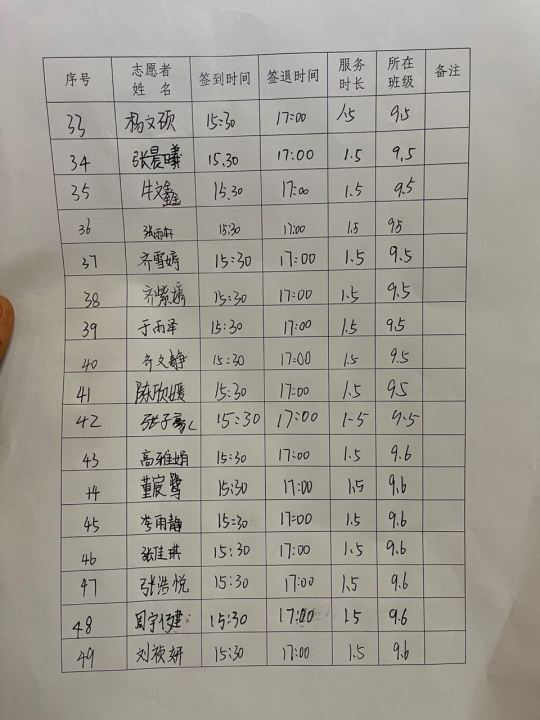 序号 志愿者姓名 签到时间 签退时间 服务时长 所在班级 备注
33 杨文硕 15:30 17:00 1.5 9.5
34 张晨曦 15.30 17:00 1.5 9.5
35 牛文鑫 15.30 17:00 1.5 9.5
36 15:30 17:00 1.5 9.5
37 齐雪婷 15:30 17:00 1.5 9.5
38 齐紫嫣 15:30 17:00 1.5 9.5
39 于雨泽 15:30 17:00 1.5 9.5
40 齐文静 15:30 17:00 1.5 9.5
41 陈欣媛 15:30 17:00 1.5 9.5
42 张子豪 15:30 17:00 1.5 9.5
43 高雅娟 15:30 17:00 1.5 9.6
44 董宸鹭 15:30 17:00 1.5 9.6
45 李雨静 15:30 17:00 1.5 9.6
46 张佳琪 15:30 17:00 1.5 9.6
47 张浩悦 15:30 17:00 1.5 9.6
48 15:30 17:00 1.5 9.6
49 刘祯妍 15:30 17:00 1.5 9.6